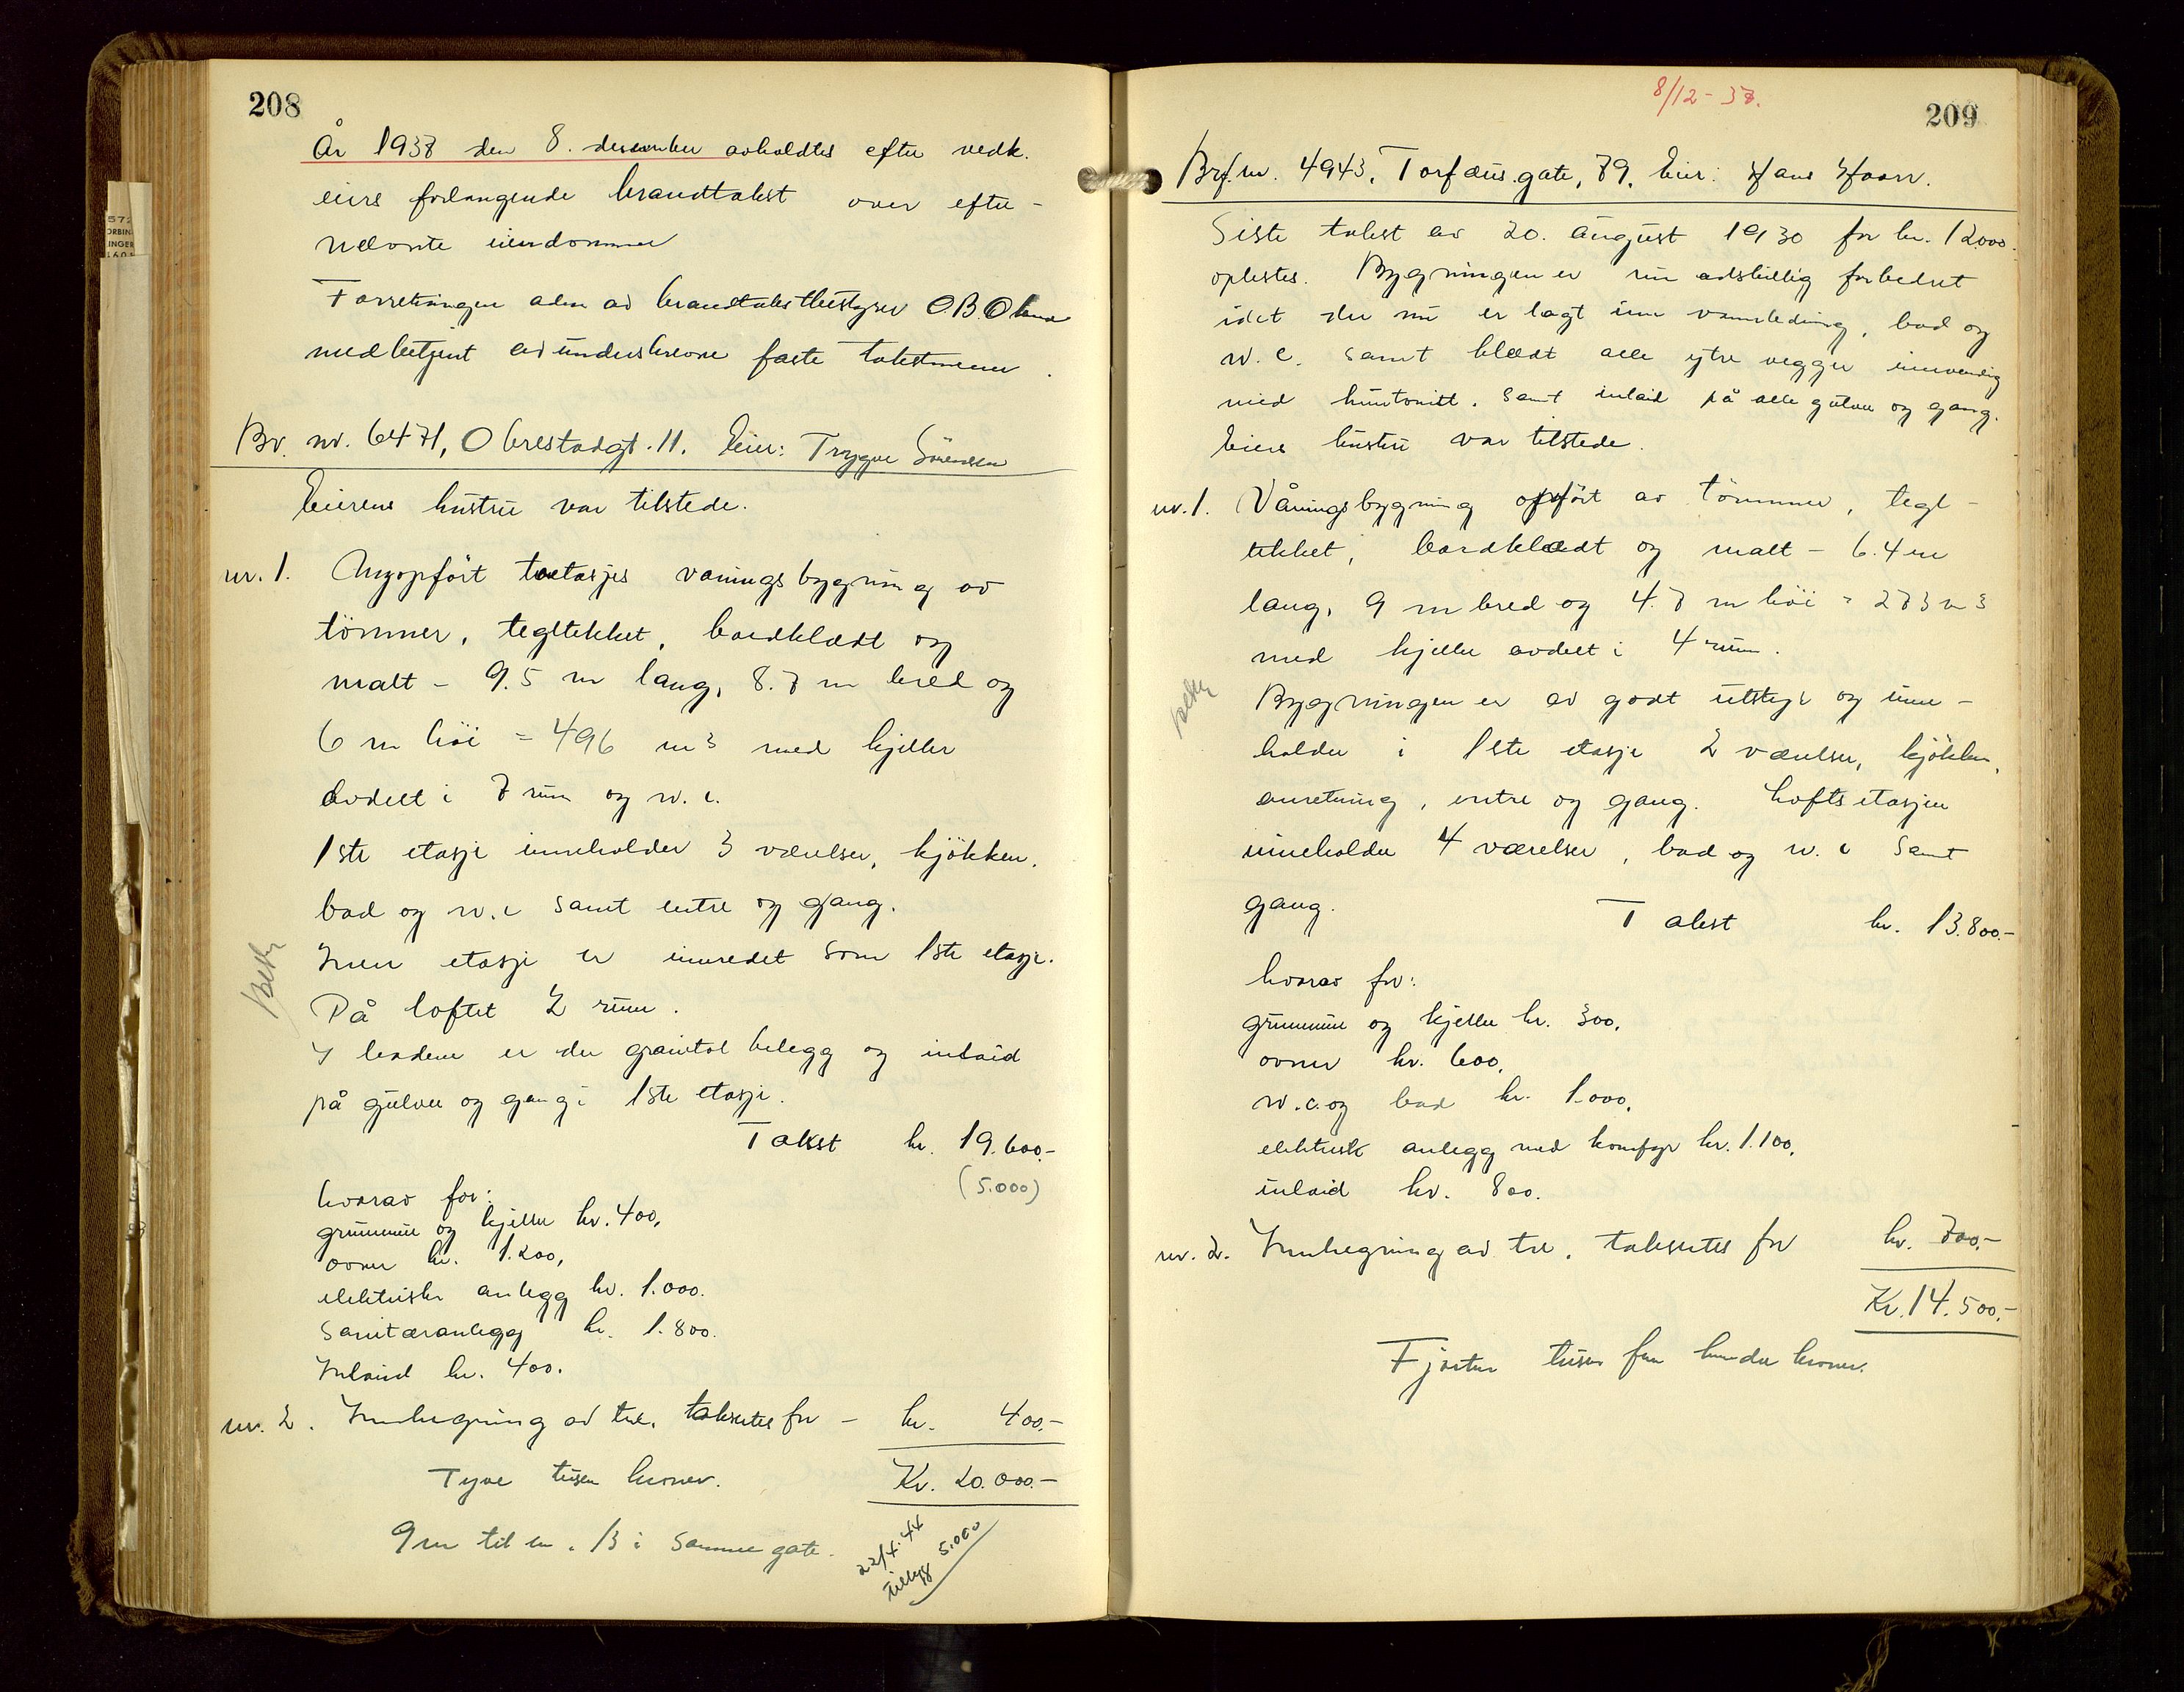 208
År 1938 den 8. desember avholdtes efter vedk.
eiers forlangende brandtakst over efter-
nevnte eiendommer
Forretningen adm av branntakstbestyrer O.B.
med betjent av underskrevne faste takstmenn.
Br. nr. 6471, Obrestadgt. 11. Eier: Trygve Sörensen
Eierens hustru var tilstede.
nr. 1. Nyopfört toetasjes våningsbygning av
tömmer, tegltekket, bordklædt og
malt - 9.5 m lang, 8.7 m bred og
6 m höi = 496 m3 med kjeller
avdelt i 7 rum og w.c.
1ste etasje inneholder 3 værelser, kjökken,
bad og w.c samt entre og gang.
Innen etasje er innredet som 1ste etasje.
På loftet 2 rum.
I badene er der granitol belegg og inlaid
på gulver og gang i 1ste etasje.
Takst kr. 19.600.-
(5.000)
hvorav for:
grunnmur og kjeller kr. 400,
ovner kr. 1.200,
elektriske anlegg kr. 1.000.
Sanitæranlegg kr. 1.800.
Inlaid kr. 400.
nr. 2. Innhegning av tre, takseres for - kr. 400.-
Tyve tusen kroner. Kr. 20.000.-
9 m til nr. 13 i samme gate.
22/4.44
tilbygg 5.000
8/12-38.
209
Brf. nr. 4943, Torfæus.gate, 79, Eier: Hans Haarr.
Siste takst av 20. august 1930 for kr. 12.000.
oplestes. Bygningen er nu adskillig forbedret
idet der nu er lagt inn vannledning, bad og
w.c. samt klædt alle ytre vegger innvendig
med huntonitt, samt inlaid på alle gulver og gang.
Eiers hustru var tilstede.
nr. 1. Våningsbygning opfört av tömmer, tegl-
tekket, bordklædt og malt - 6.4 m
lang, 9 m bred og 4.7 m höi = 273 m3
med kjeller avdelt i 4 rum.
Bygningen er av godt utstyr og inne-
holder i 1ste etasje 2 værelser, kjökken,
anretning, entre og gang. Loftsetasjen
inneholder 4 værelser, bad og w.c samt
gang.
Takst kr. 13.800.-
hvorav for:
grunnmur og kjeller kr. 300,
ovner kr. 600,
w.c. og bad kr. 1.000,
elektrisk anlegg med komfyr kr. 1.100,
inlaid kr. 800.
nr. 2. Innhegning av tre, takseres for kr. 700.-
Kr. 14.500.-
Fjorten tusen fem hundre kroner.